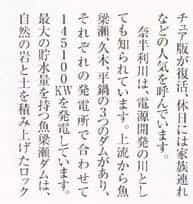 チュア版が復活、休日には家族連れ
などの人気を呼んでいます。
奈半利川は、電源開発の川とし
ても知られています。上流から魚
梁瀬、久木、平鍋の3つのダムがあり、
それぞれの発電所で合わせて
145100KWを発電しています。
最大の貯水量を持つ魚梁瀬ダムは、
自然の岩と土を積み上げたロック